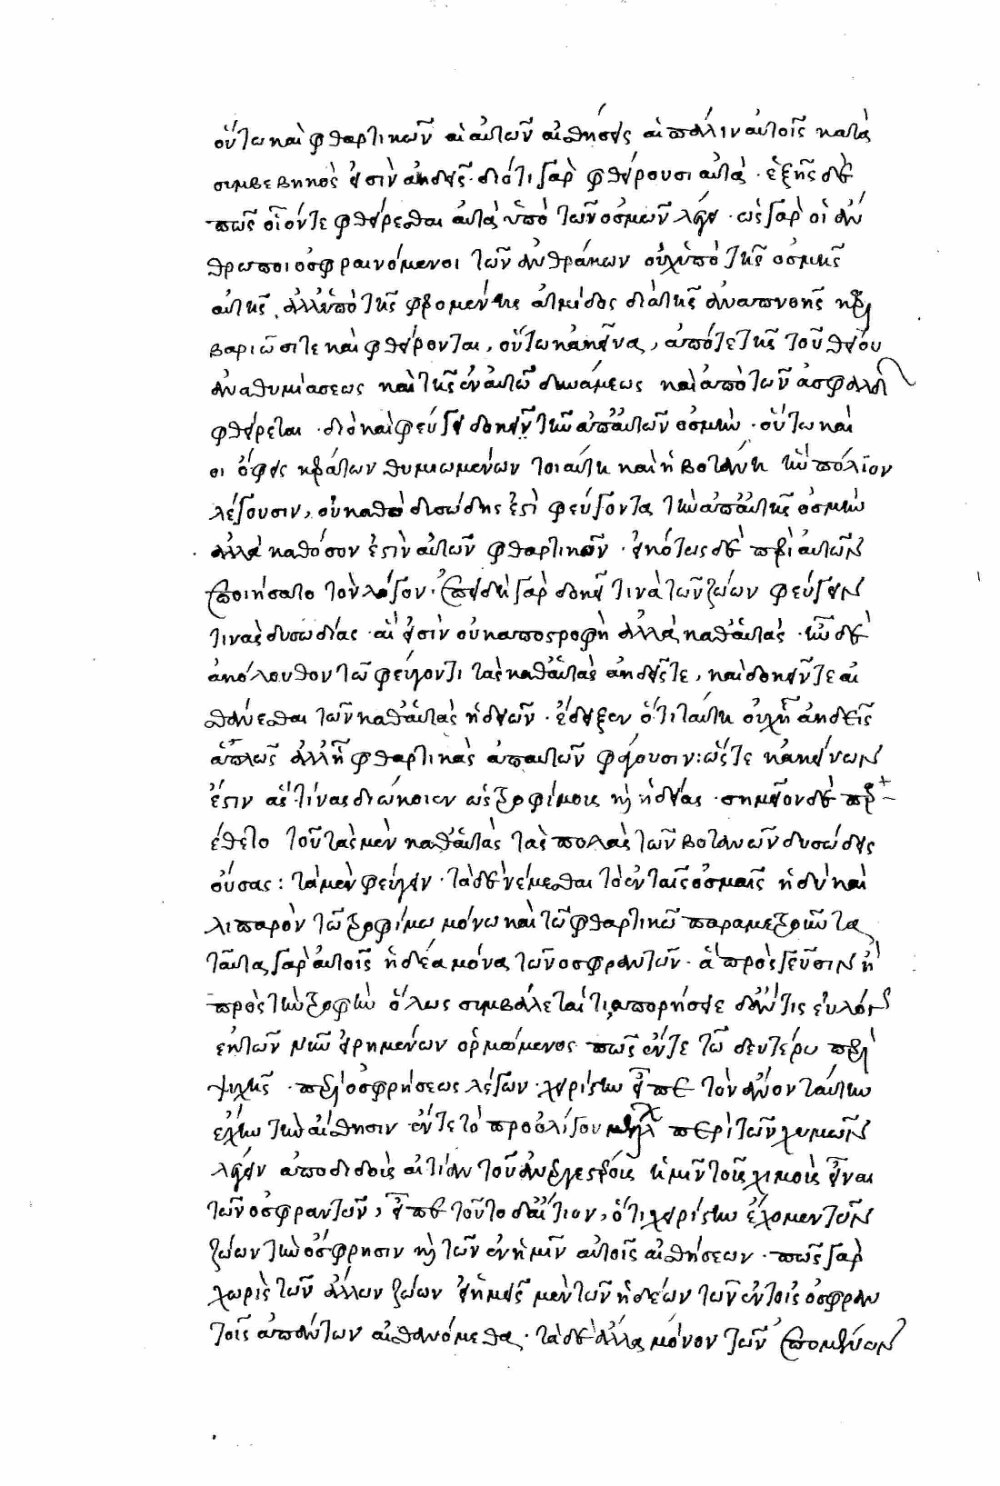 οὕτω καὶ φθαρτικῶν αἱ αὐτῶν αἰσθήσεις αἳ πάλιν αὐτοῖς κατὰ
συμβεβηκὸς εἰσὶν ἀηδεῖς· διότι γὰρ φθείρουσι αὐτὰ· ἑξῆς δὲ
πῶς οἷόν τε φθείρεσθαι αὐτὰ ὑπὸ τῶν ὀσμῶν λέγει· ὡς γὰρ οἱ ἄν
θρωποι ὀσφραινόμενοι τῶν ἀνθράκων οὐχ ὑπὸ τῆς ὀσμῆς
αὐτῆς ἀλλ' ὑπὸ τῆς φερομένης ἀτμίδος διὰ τῆς ἀναπνοῆς κη
βαριῶσί τε καὶ φθείρονται, οὕτω κἀκεῖνα, ἀπό τε τῆς τοῦ θείου
ἀναθυμιάσεως καὶ τῆς ἐν αὐτῶ δυνάμεως καὶ ἀπὸ τῶν ἀσφαλτ
φθείρεται· διὸ καὶ φεύγει δοκεῖν τὴν ἀπ' αὐτῶν ὀσμήν· οὕτω καὶ
οἱ ὄφεις κεράτων θυμιωμένων τοιαύτη καὶ ἡ βοτάνη ἣν πόλιον
λέγουσιν, οὐ καθὸ δυσώδης ἐστὶ φεύγοντα τὴν ἀπ' αὐτῆς ὀσμὴν
ἀλλὰ καθόσον ἐστὶν αὐτῶν φθαρτικῶν· εἰκότως δὲ περὶ αὐτῶν
ἐποιήσατο τὸν λόγον· ἐπειδὴ γὰρ δοκεῖ τινὰ τῶν ζώων φεύγειν
τινὰς δυσωδίας· αἵ εἰσιν οὐκ ἀποστροφὴ ἀλλὰ καθ' αὑτὰς· τῶ δὲ
ἀκόλουθον τῶ φεύγοντι τὰς καθ' αὑτὰς ἀηδεῖς τε, καὶ δοκεῖν τε αἰ
σθάνεσθαι τῶν καθ' αὑτὰς ἡδειῶν· ἔδειξεν ὅτι ταύτη οὐχ ἧ ἀηδεῖς
ἁπλῶς ἀλλ' ἧ φθαρτικὰς ἀπ' αὐτῶν φέρουσιν: ὥστε κἀκείνων
ἐστιν ἅς τινας διώκοιεν ὡς τροφίμους καὶ ἡδείας· σημεῖον δὲ παρ
έθετο τοῦ τὰς μὲν καθ' αὑτὰς τὰς πολλὰς τῶν βοτανῶν δυσώδεις
οὔσας: τὰ μὲν φεύγειν· τὰ δὲ νέμεσθαι τὸ ἐν ταῖς ὀσμαῖς ἡδὺ καὶ
λιπαρὸν τῶ τροφίμω μόνω καὶ τῶ φθαρτικῶ παραμετροῦντα
ταῦτα γὰρ αὐτοῖς ἡδέα μόνα τῶν ὀσφραντῶν· ἃ πρὸς γεῦσιν ἢ
πρὸς τὴν τροφὴν ὅλως συμβάλεται τι, ἀπορήσειε δ' ἄν τις εὐλόγ
ἐκ τῶν νῦν εἰρημένων ὁρμώμενος πῶς ἔν τε τῶ δευτέρω περὶ
ψυχῆς· περὶ ὀσφρήσεως λέγων· χειρίστην εἶπε τὸν ἄνον ταύτην
ἔχειν τὴν αἴσθησιν· ἔν τε τὸ πρὸ ὀλίγου περὶ τῶν χυμῶν
λέγειν ἀποδιδοὺς αἰτίαν τοῦ ἐναργεστέρους ἡμῖν τοὺς χυμοὺς εἶναι
τῶν ὀσφραντῶν, εἶπε τοῦτο δ' αἴτιον, ὅτι χειρίστην ἔχομεν τῶν
ζώων τὴν ὄσφρησιν καὶ τῶν ἐν ἡμῖν αὐτοῖς αἰσθήσεων· πῶς γὰρ
χωρὶς τῶν ἄλλων ζώων εἰ ἡμεῖς μὲν τῶν ἡδέων τῶν ἐν τοῖς ὀσφραν
τοῖς ἁπάντων αἰσθανόμεθα· τὰ δὲ ἄλλα μόνον τῶν ἑπομένων